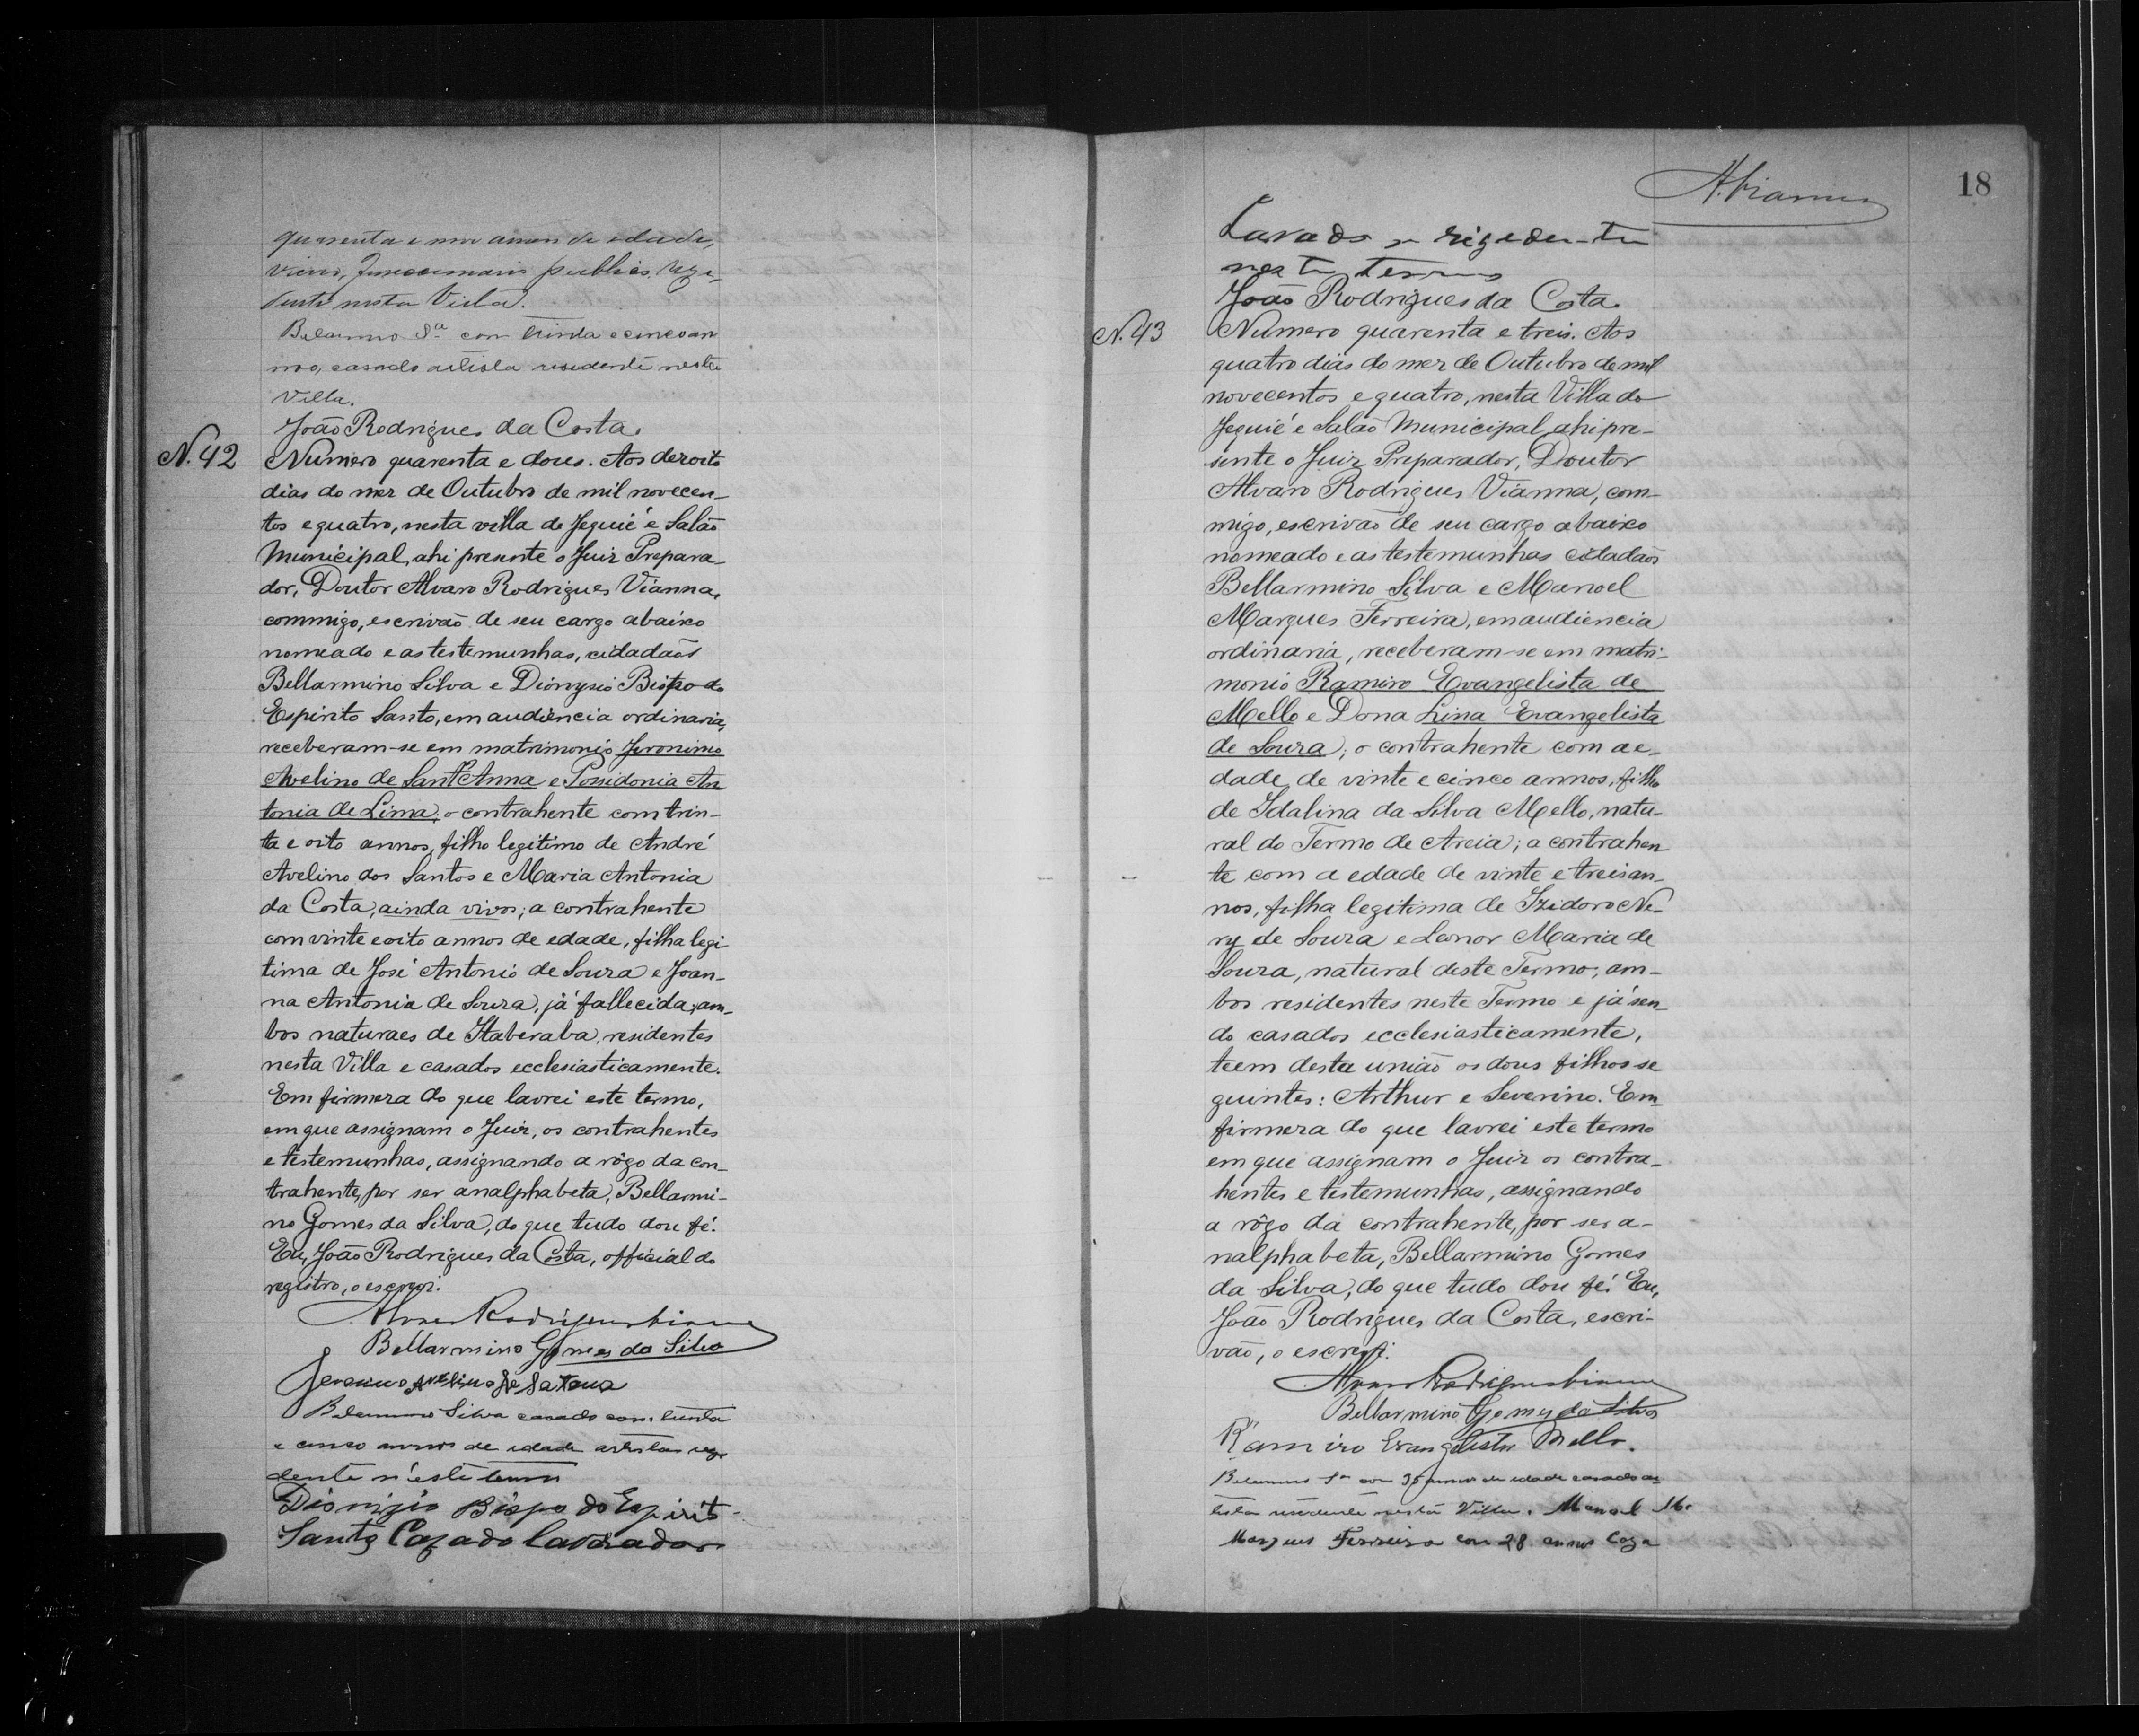 quarenta e um annos de edade,
viuvo, funccionario publico, rezi-
dente nesta Villa.
Belarmino Sa com trinta e cinco an
nos, casado artista residente nesta
Villa.
João Rodrigues da Costa.
N. 42 Numero quarenta e dous. Aos dezoito
dias do mez de Outubro de mil novecen-
tos e quatro, nesta villa de Jequié e Salão
Municipal, ahi presente o Juiz Prepara-
dor, Doutor Alvaro Rodrigues Vianna,
commigo, escrivão de seu cargo abaixo
nomeado e as testemunhas, cidadaõs
Bellarmino Silva e Dionysio Bispo do
Espirito Santo, em audiencia ordinaria,
receberam-se em matrimonio Jeronimo
Avelino de Sant'Anna e Possidonia An
tonia de Lima; o contrahente com trin-
ta e oito annos, filho legitimo de André
Avelino dos Santos e Maria Antonia
da Costa, ainda vivos; a contrahente
com vinte e oito annos de edade, filha legi
tima de José Antonio de Souza e Joan-
na Antonia de Souza, já fallecida; am-
bos naturaes de Itaberaba, residentes
nesta Villa e casados ecclesiasticamente.
Em firmeza do que lavrei este termo,
em que assignam o Juiz, os contrahentes
e testemunhas, assignando a rôgo da con-
trahente, por ser analphabeta, Bellarmi-
no Gomes da Silva, do que tudo dou fé.
Eu, João Rodrigues da Costa, official do
registro, o escrevi.
Alvaro Rodrigues Vianna
Bellarmino Gomes da Silva
Jeronimo Avelino de Satana
Belarmino Silva casado com trinta
e cinco annos de idade artista rezi
dente n'este termo
Dionizio Bispo do Espirito
Santo Cazado lavrador
A. Vianna
18
Lavado e rigedente
neste termo
João Rodrigues da Costa.
N. 43 Numero quarenta e treis. Aos
quatro dias do mez de Outubro de mil
novecentos e quatro, nesta Villa de
Jequié e Salão Municipal, ahi pre-
sente o Juiz Preparador, Doutor
Alvaro Rodrigues Vianna, com-
migo, escrivaõ de seu cargo abaixo
nomeado e as testemunhas cidadaõs
Bellarmino Silva e Manoel
Marques Ferreira, em audiencia
ordinaria, receberam-se em matri-
monio Ramiro Evangelista de
Mello e Dona Lina Evangelista
de Souza; o contrahente com a e-
dade de vinte e cinco annos, filho
de Idalina da Silva Mello, natu-
ral do Termo de Areia; a contrahen
te com a edade de vinte e treis an-
nos, filha legitima de Izidoro Ne-
ry de Souza e Leonor Maria de
Souza, natural deste Termo; am-
bos residentes neste Termo e já sen-
do casados ecclesiasticamente,
teem desta união os dous filhos se
guintes: Arthur e Severino. Em
firmeza do que lavrei este termo
em que assignam o Juiz os contra-
hentes e testemunhas, assignando
a rôgo da contrahente, por ser a-
nalphabeta, Bellarmino Gomes
da Silva, do que tudo dou fé. Eu,
João Rodrigues da Costa, escri-
vão, o escrevi.
Alvaro Rodrigues Vianna
Bellarmino Gomes da Silva
Ramiro Evangelista Mello.
Belarmino Sa com 35 annos de idade casado ar
tista residente nesta Villa. Manoel
Marques Ferreira com 28 annos Caza